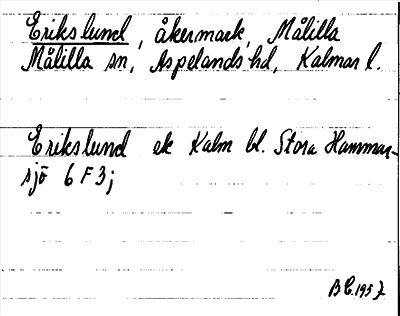 Erikslund, åkermark, Målilla
Målilla sn, Aspelands hd, Kalmar l.
Erikslund ek Kalm bl. Stora Hammar-
sjö 6 F 3;
B C. 1957